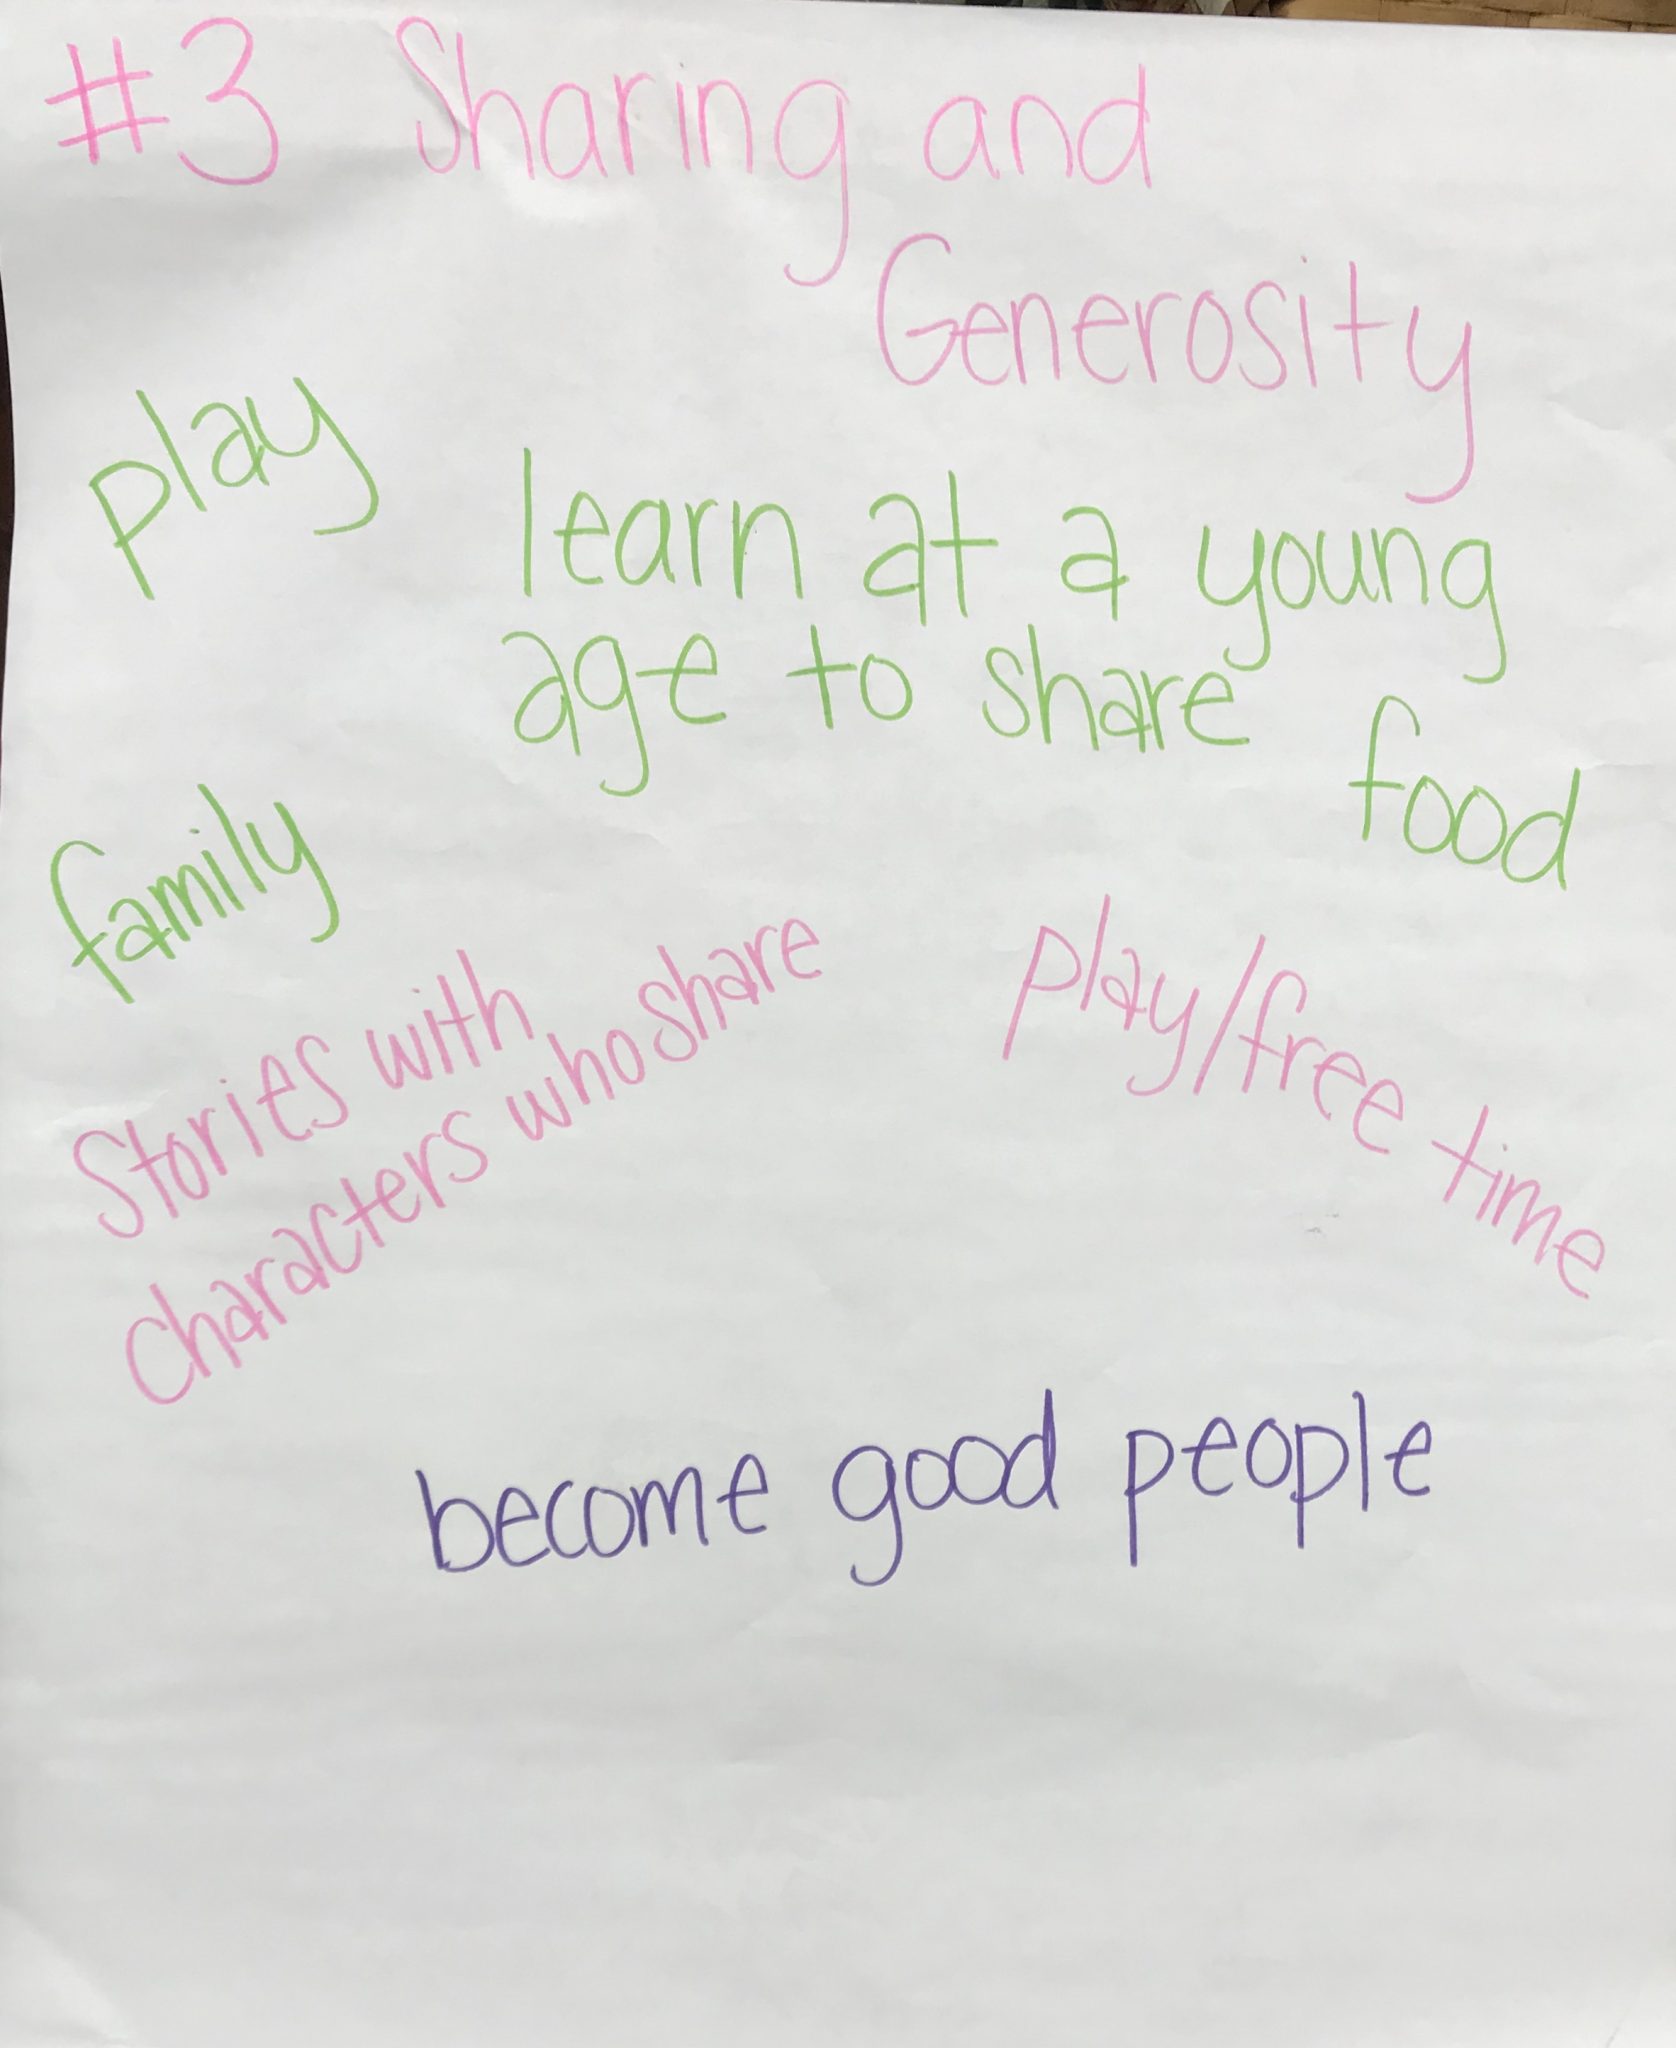 #3 Sharing and
Generosity
play
learn at a young
age to share
food
family
Stories with
characters who share
play/free time
become good people